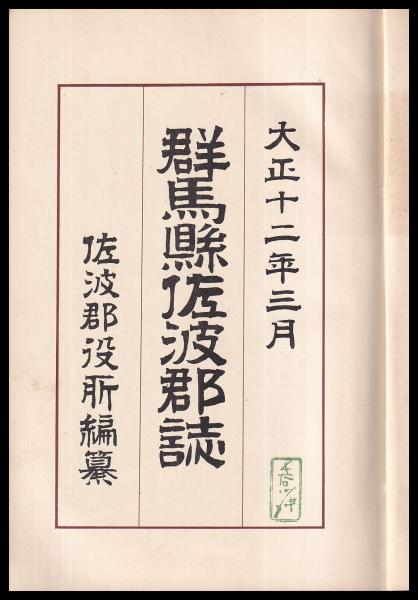 大正十二年三月
群馬縣佐波郡誌
佐波郡役所編纂